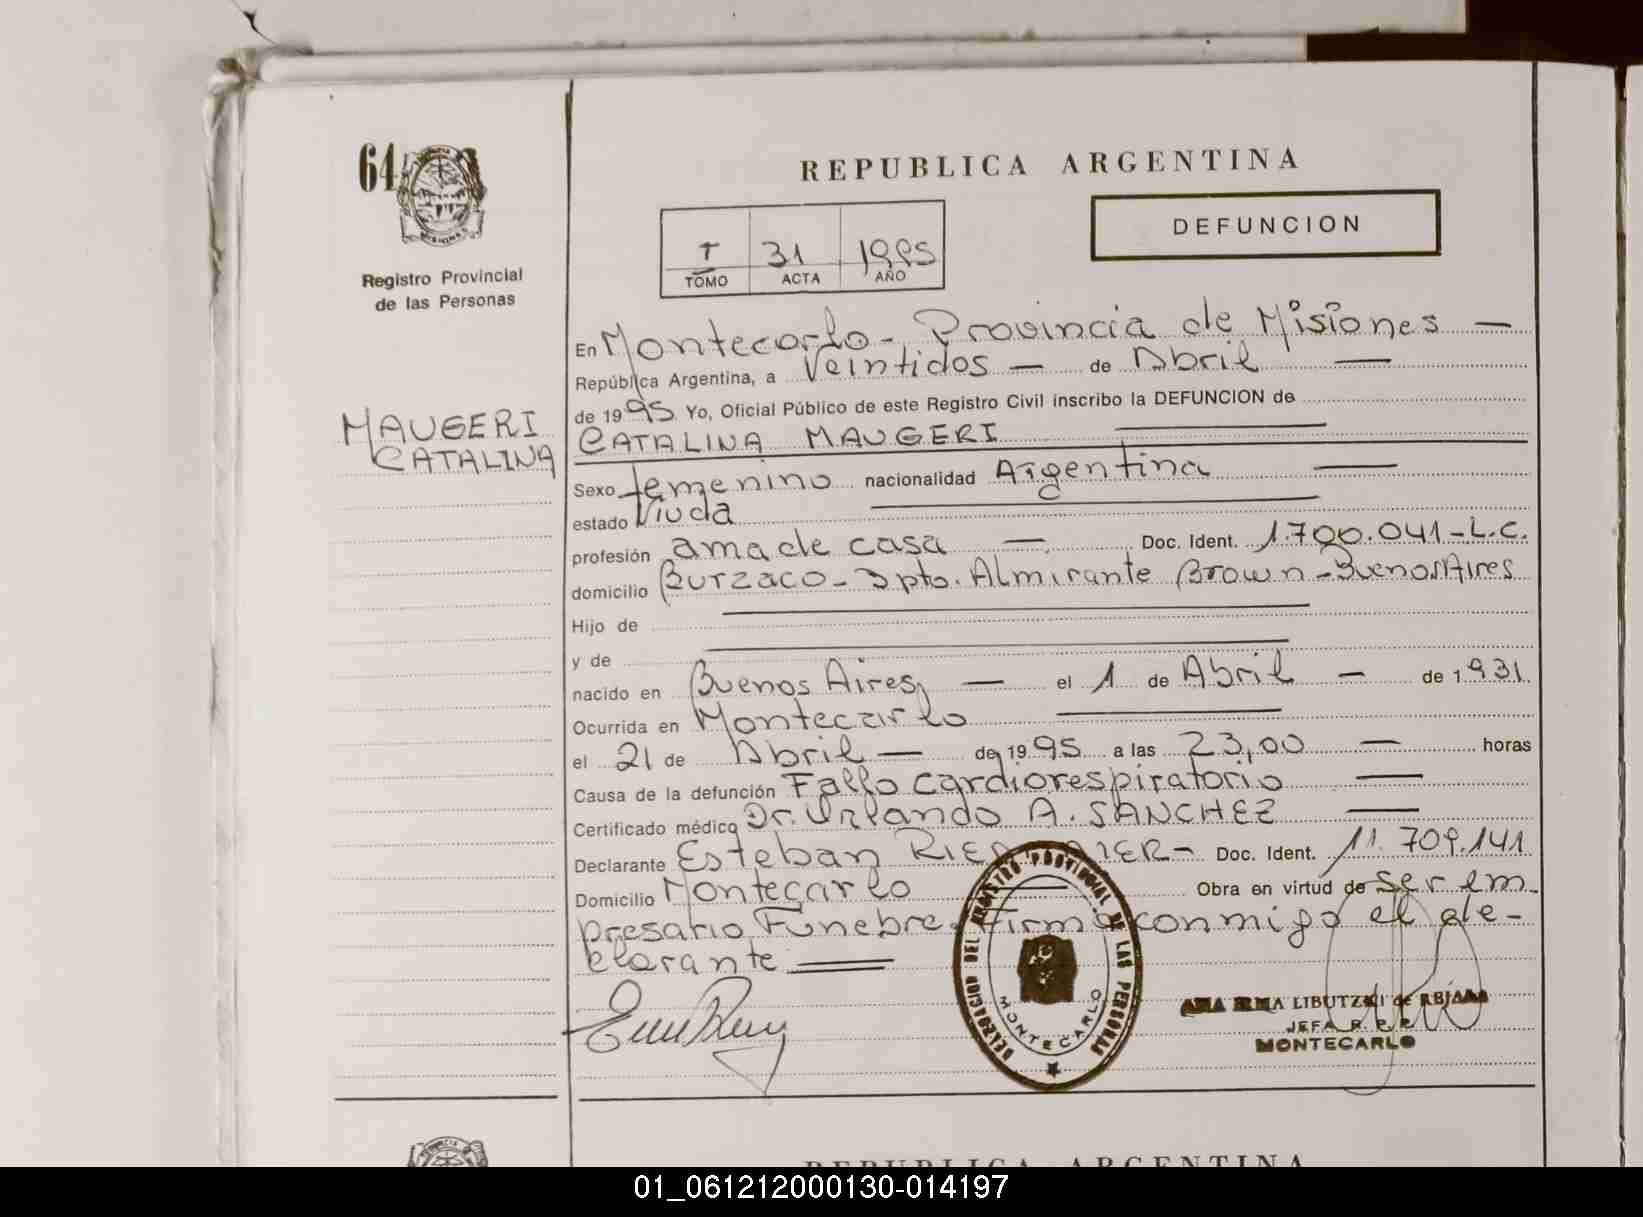 64
Registro Provincial
de las Personas
REPUBLICA ARGENTINA
DEFUNCION
I 31 1995
TOMO ACTA AÑO
En Montecarlo - Provincia de Misiones —
República Argentina, a Veintidos — de Abril —
de 1995 Yo, Oficial Público de este Registro Civil inscribo la DEFUNCION de
CATALINA MAUGERI
MAUGERI
CATALINA
Sexo femenino nacionalidad Argentina —
estado Viuda
profesión ama de casa — Doc. Ident. 1.700.041-L.C.
domicilio Burzaco - Dpto. Almirante Brown - Buenos Aires
Hijo de
y de
nacido en Buenos Aires, — el 1 de Abril — de 1.931.
Ocurrida en Montecarlo
el 21 de Abril — de 1995 a las 23,00 — horas
Causa de la defunción Fallo cardiorespiratorio —
Certificado médico Dr. Orlando A. SANCHEZ —
Declarante Esteban Doc. Ident. 11.709.141
Domicilio Montecarlo Obra en virtud de ser em-
presario Funebre. Firma conmigo el de-
clarante
DELEGACION DEL REGISTRO PROVINCIAL DE LAS PERSONAS
MONTECARLO
ANA IRMA LIBUTZKI de
JEFA R.P.P.
MONTECARLO
REPUBLICA ARGENTINA
01_061212000130-014197